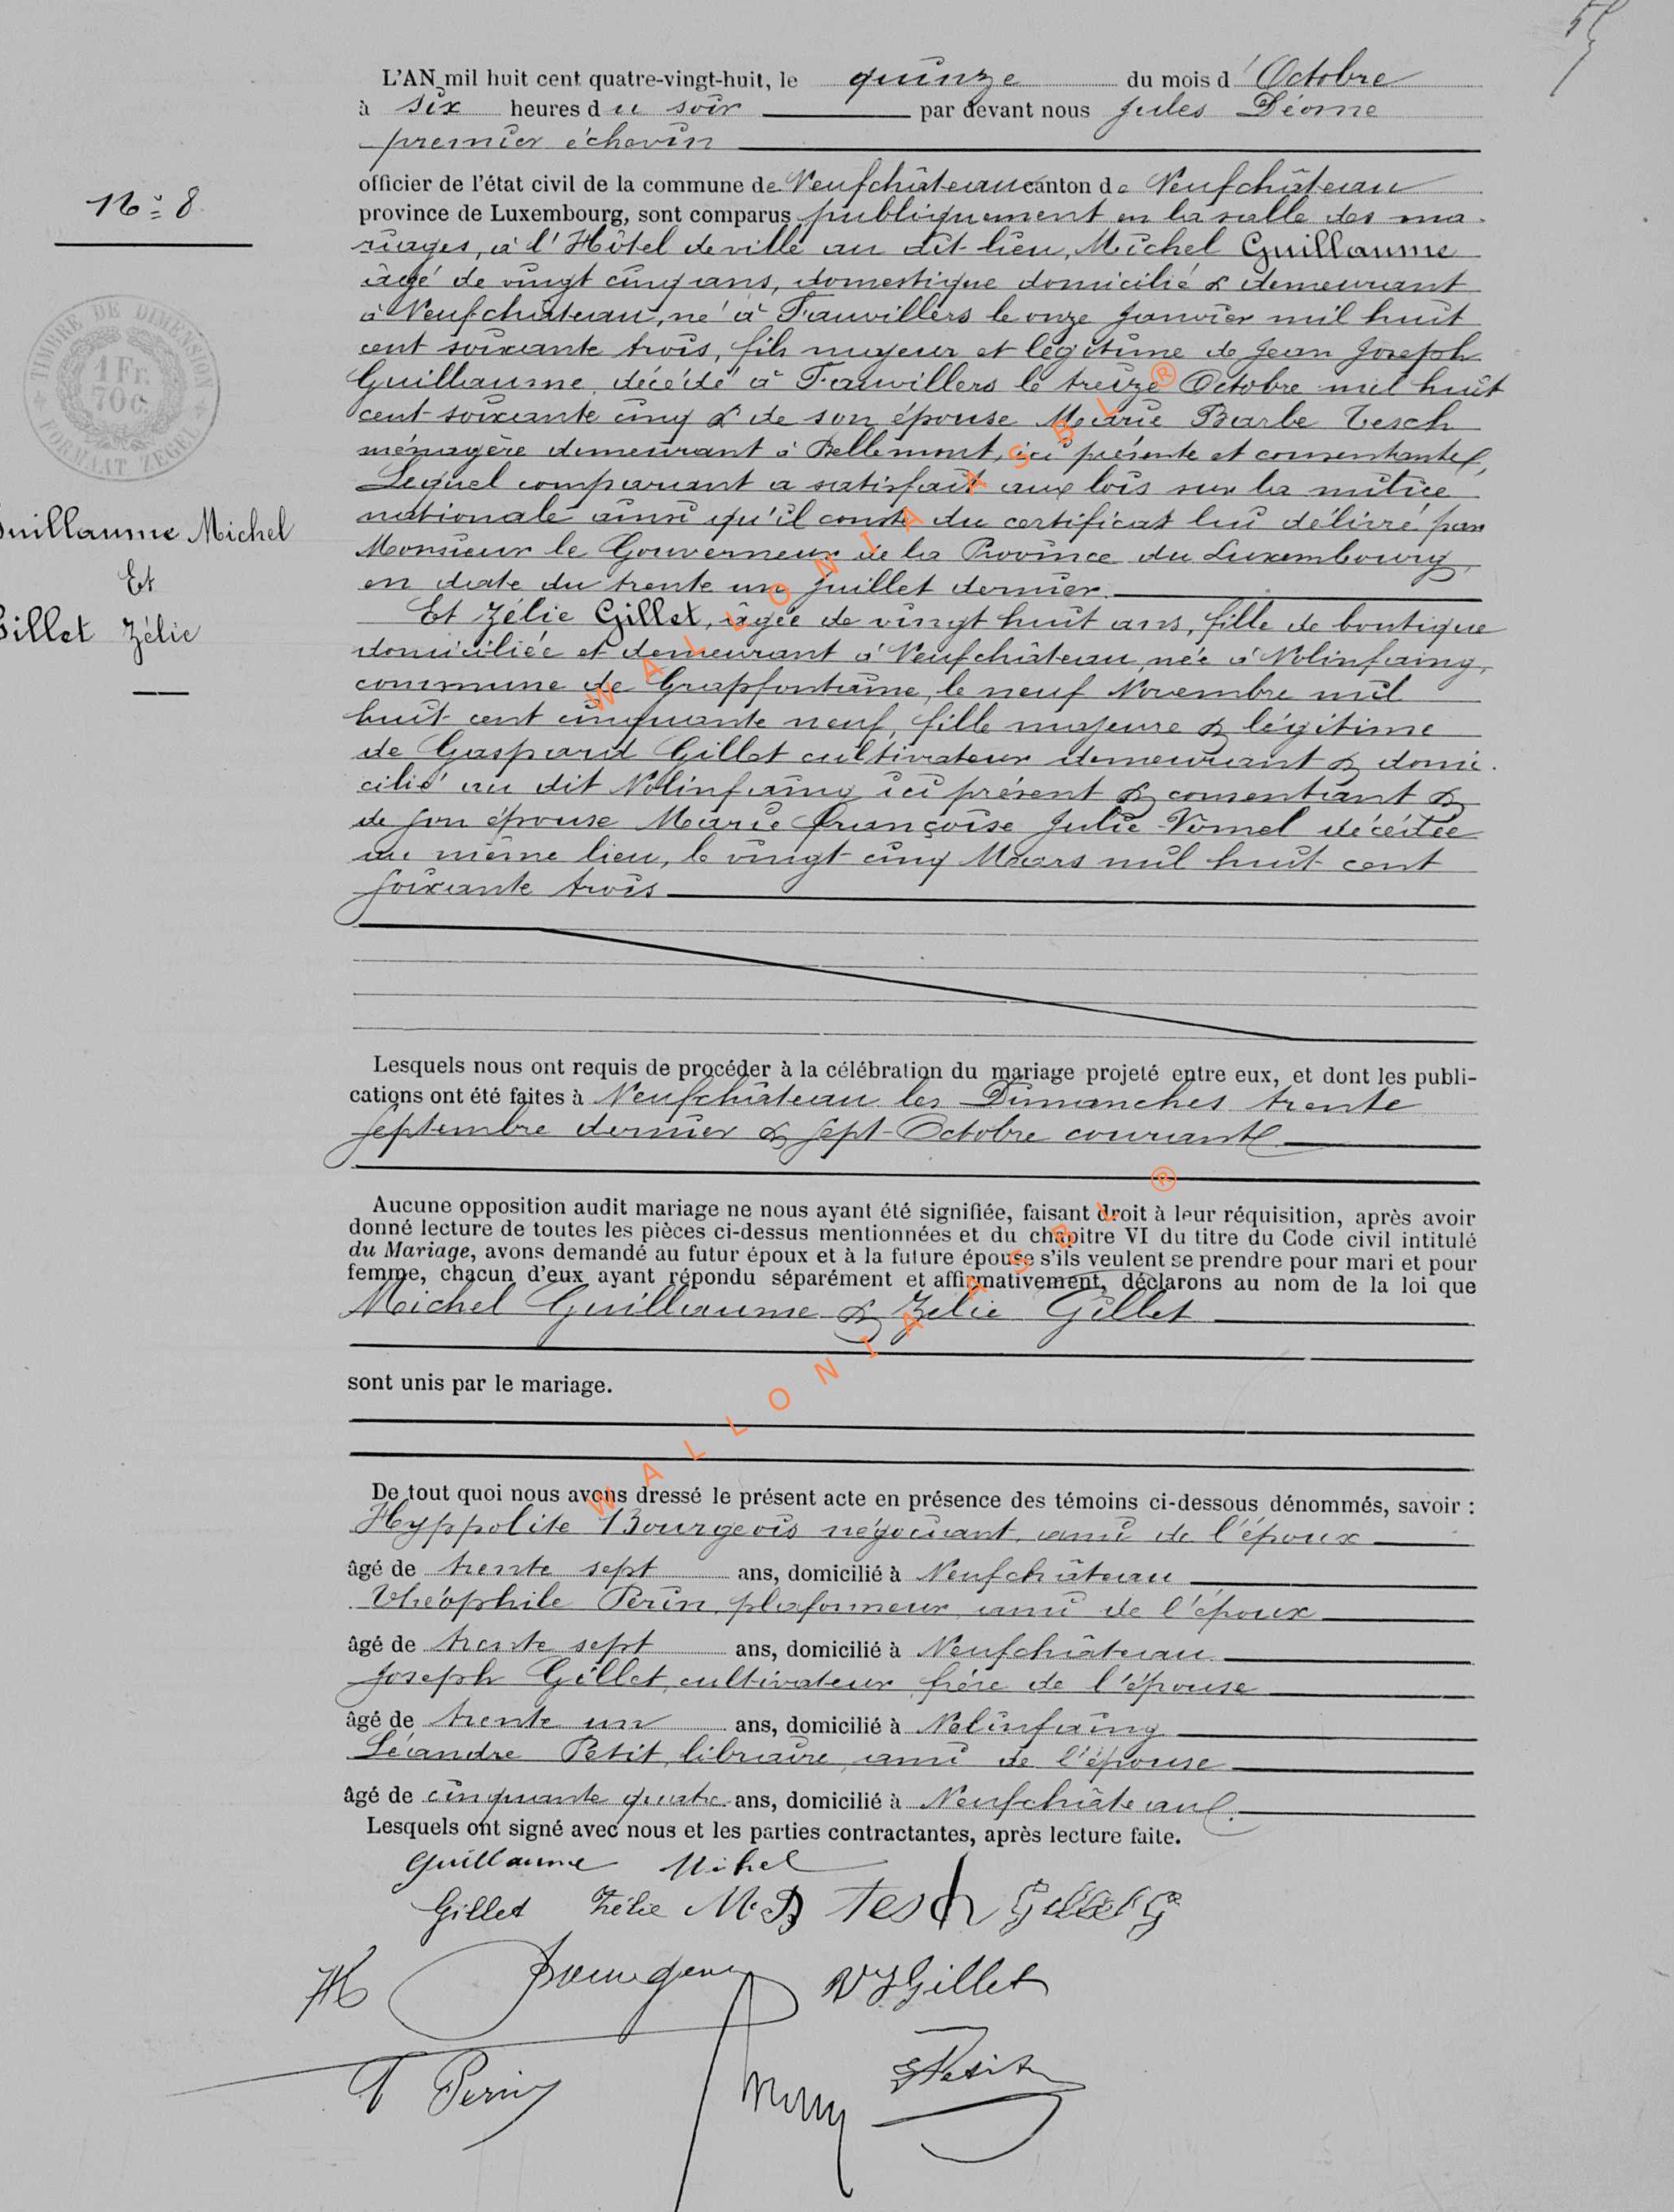 L'AN mil huit cent quatre-vingt-huit, le quinze du mois d' Octobre
à six heures du soir par devant nous Jules Déome
premier échevin
officier de l'état civil de la commune de Neufchâteau canton de Neufchâteau
province de Luxembourg, sont comparus publiquement en la salle des ma-
riages, à l'Hôtel de ville au dit lieu, Michel Guillaume
âgé de vingt cinq ans, domestique domicilié & demeurant
à Neufchâteau, né à Fauvillers le onze Janvier mil huit
cent soixante trois, fils majeur et légitime de Jean Joseph
Guillaume, décédé à Fauvillers le treize Octobre mil huit
cent soixante cinq & de son épouse Marie Barbe Tesch
ménagère demeurant à Bellemont, ici présente et consentante,
Lequel comparant a satisfait aux lois sur la milice
nationale ainsi qu'il conste du certificat lui délivré par
Monsieur le Gouverneur de la Province du Luxembourg,
en date du trente un Juillet dernier.
Et Zélie Gillet, âgée de vingt huit ans, fille de boutique
domiciliée et demeurant à Neufchâteau, née à Nolinfaing,
commune de Grapfontaine, le neuf Novembre mil
huit cent cinquante neuf, fille majeure & légitime
de Gaspard Gillet cultivateur demeurant & domi-
cilié au dit Nolinfaing ici présent & consentant &
de son épouse Marie Françoise Julie décédée
au même lieu, le vingt cinq Mars mil huit cent
soixante trois
Lesquels nous ont requis de procéder à la célébration du mariage projeté entre eux, et dont les publi-
cations ont été faites à Neufchâteau les Dimanches trente
Septembre dernier & sept Octobre courant
Aucune opposition audit mariage ne nous ayant été signifiée, faisant droit à leur réquisition, après avoir
donné lecture de toutes les pièces ci-dessus mentionnées et du chapitre VI du titre du Code civil intitulé
du Mariage, avons demandé au futur époux et à la future épouse s'ils veulent se prendre pour mari et pour
femme, chacun d'eux ayant répondu séparément et affirmativement, déclarons au nom de la loi que
Michel Guillaume & Zélie Gillet
sont unis par le mariage.
De tout quoi nous avons dressé le présent acte en présence des témoins ci-dessous dénommés, savoir :
Hyppolite Bourgeois négociant, ami de l'époux
âgé de trente sept ans, domicilié à Neufchâteau
Théophile Périn, plafonneur, ami de l'époux
âgé de trente sept ans, domicilié à Neufchâteau
Joseph Gillet, cultivateur, frère de l'épouse
âgé de trente un ans, domicilié à Nolinfaing
Léandre Petit, libraire, ami de l'épouse
âgé de cinquante quatre ans, domicilié à Neufchâteau.
Lesquels ont signé avec nous et les parties contractantes, après lecture faite.
Guillaume Mihel
Gillet Zélie M B Tesch Gillet G
H Bourgeois Gillet
T Perin Petit
N° 8
TIMBRE DE DIMENSION
1 Fr.
70 C.
FORMAAT ZEGEL
Guillaume Michel
Et
Gillet Zélie
WALLONIA ASBL ®
WALLONIA ASBL ®